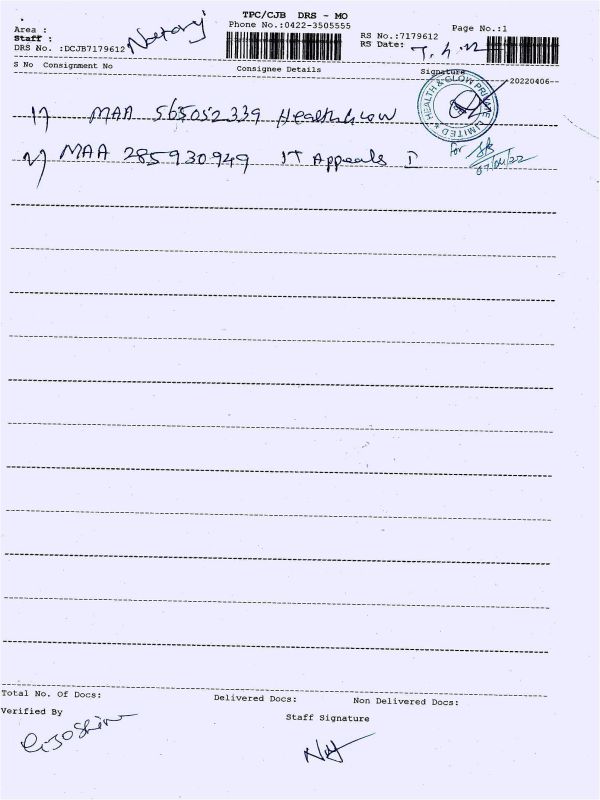 TPC/CJB DRS - MO
Phone No.:0422-3505555
Page No.:1
Area :
Staff : Nataraj
RS No.:7179612
DRS No. :DCJB7179612
RS Date: 7.4.22
S No Consignment No Consignee Details Signature
20220406
1) MAA 565052339 Health & Glow
HEALTH & GLOW PRIVATE LIMITED
2) MAA 285930949 IT Appeals I
for
07/04/22
Total No. Of Docs: Delivered Docs: Non Delivered Docs:
Verified By
Staff Signature